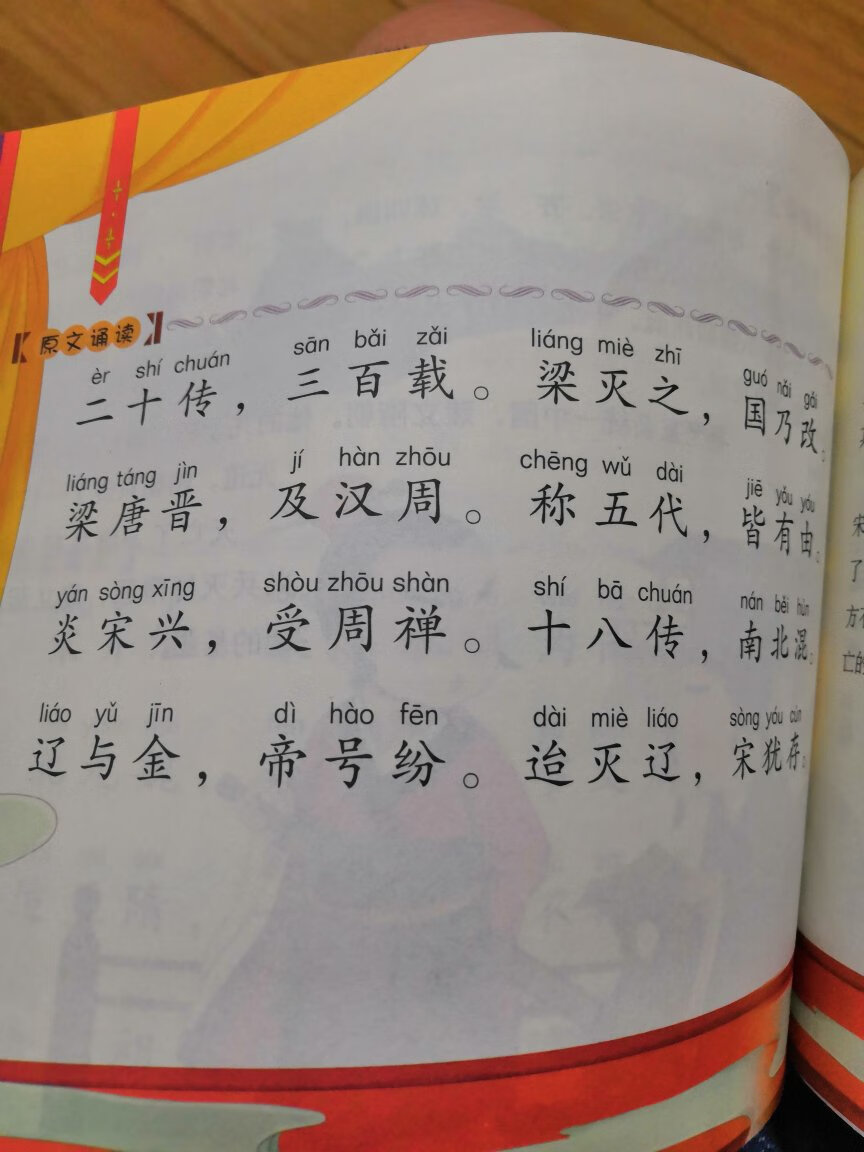 原文诵读
èr shí chuán sān bǎi zǎi liáng miè zhī guó nǎi gǎi
二十传，三百载。梁灭之，国乃改。
liáng táng jìn jí hàn zhōu chēng wǔ dài jiē yǒu yóu
梁唐晋，及汉周。称五代，皆有由。
yán sòng xīng shòu zhōu shàn shí bā chuán nán běi hùn
炎宋兴，受周禅。十八传，南北混。
liáo yǔ jīn dì hào fēn dài miè liáo sòng yóu cún
辽与金，帝号纷。迨灭辽，宋犹存。